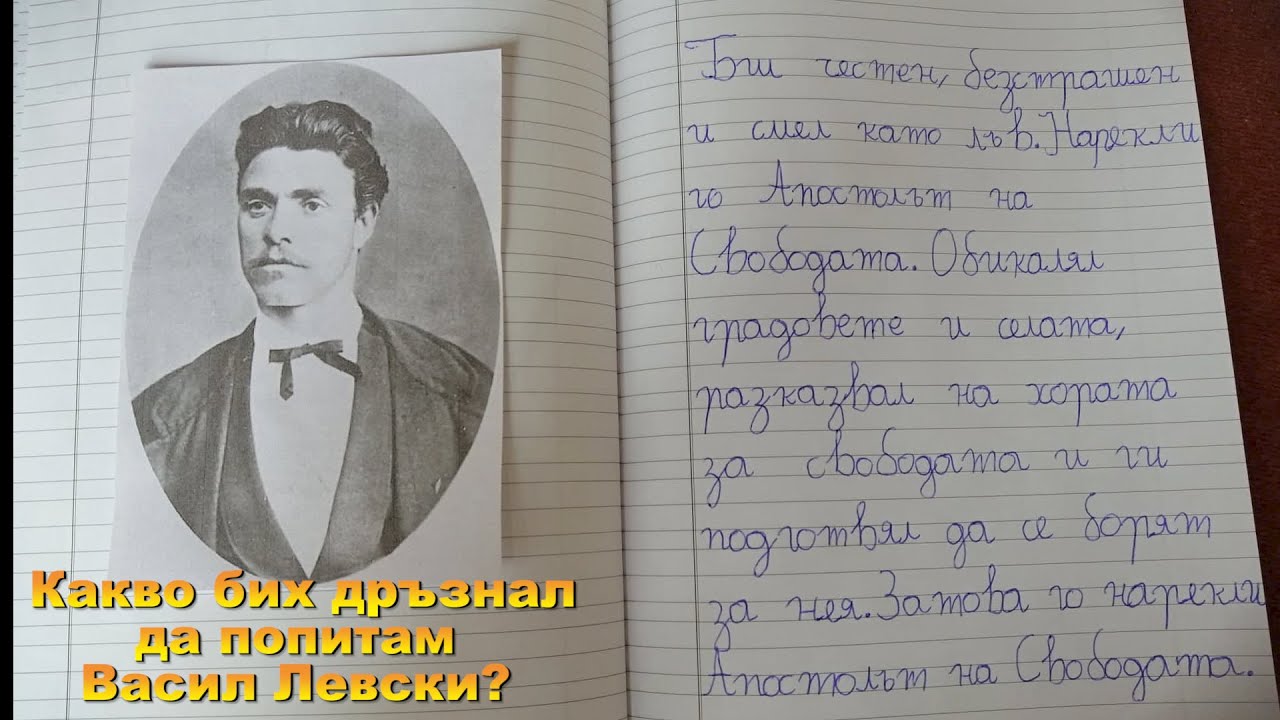 Бил честен, безстрашен
и смел като лъв. Нарекли
го Апостолът на
Свободата. Обикалял
градовете и селата,
разказвал на хората
за свободата и ги
подготвял да се борят
за нея. Затова го нарекли
Апостолът на Свободата.
Какво бих дръзнал
да попитам
Васил Левски?